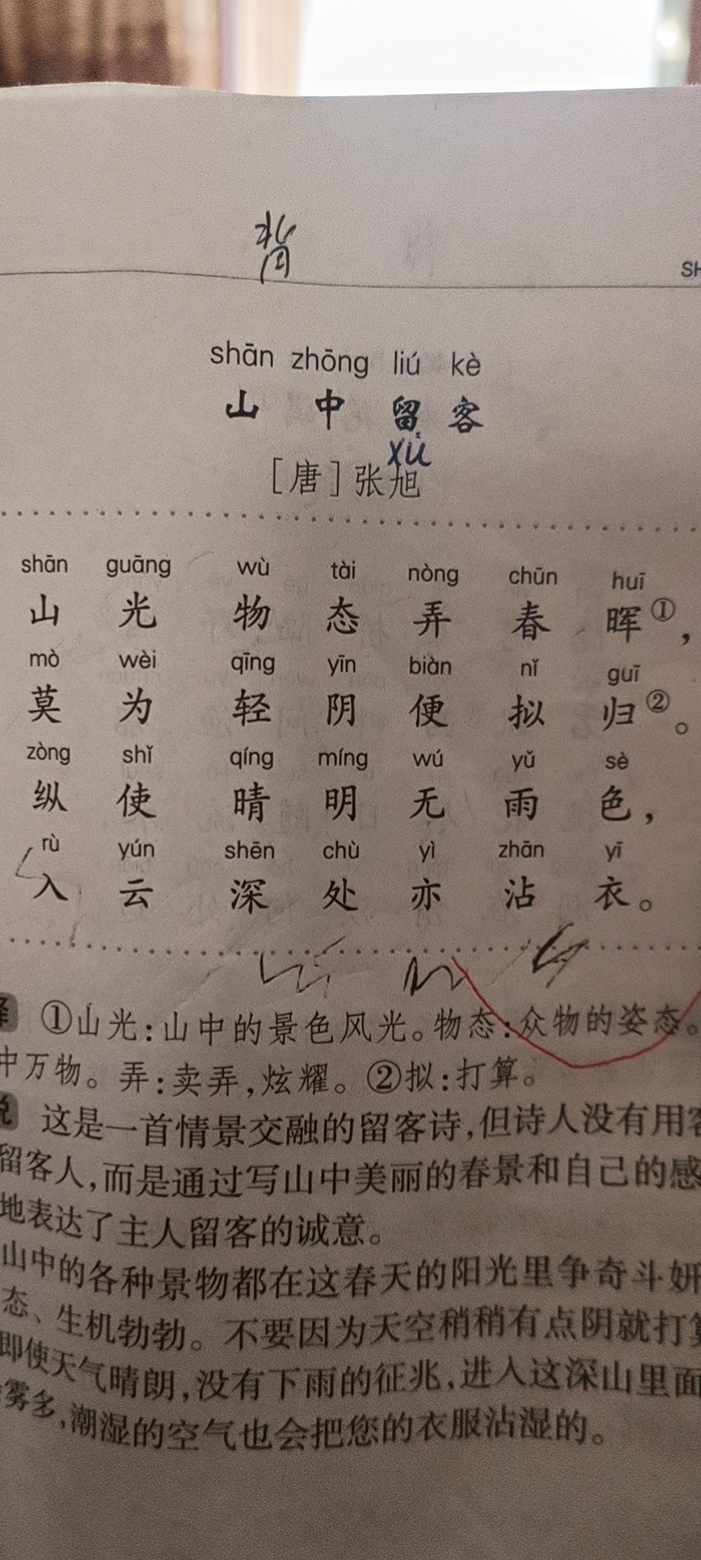 背
SH
shān zhōng liú kè
山 中 留 客
xù
[唐]张旭
shān guāng wù tài nòng chūn huī
山 光 物 态 弄 春 晖①，
mò wèi qīng yīn biàn nǐ guī
莫 为 轻 阴 便 拟 归②。
zòng shǐ qíng míng wú yǔ sè
纵 使 晴 明 无 雨 色，
rù yún shēn chù yì zhān yī
入 云 深 处 亦 沾 衣。
①山光：山中的景色风光。物态：众物的姿态。
中万物。弄：卖弄，炫耀。②拟：打算。
这是一首情景交融的留客诗，但诗人没有用客
留客人，而是通过写山中美丽的春景和自己的感
地表达了主人留客的诚意。
山中的各种景物都在这春天的阳光里争奇斗妍
态、生机勃勃。不要因为天空稍稍有点阴就打算
即使天气晴朗，没有下雨的征兆，进入这深山里面
雾多，潮湿的空气也会把您的衣服沾湿的。